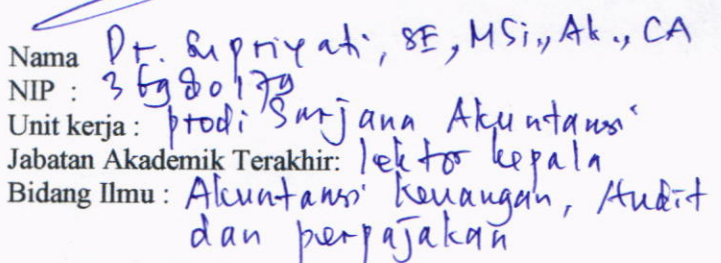 Nama Dr. Supriyati, SE, MSi., Ak., CA
NIP : 36980179
Unit kerja : prodi Sarjana Akuntansi
Jabatan Akademik Terakhir: lektor kepala
Bidang Ilmu : Akuntansi keuangan, Audit
dan perpajakan